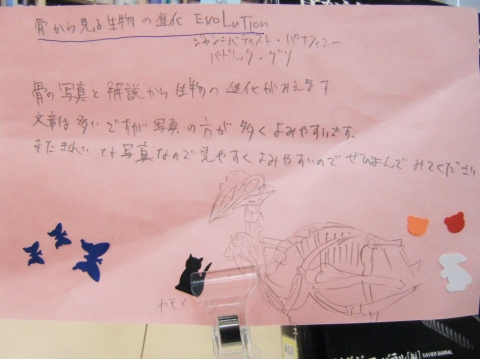 骨から見る生物の進化 EVOLUTION
ジャン=バティスト・パナフィユー
パトリック・グリ
骨の写真と解説から生物の進化がみえます
文章は多いですが写真の方が多くよみやすいです.
またきれい な写真なので見やすくよみやすいのでぜひよんでみてください
カモメ
XAVIER BARRAL